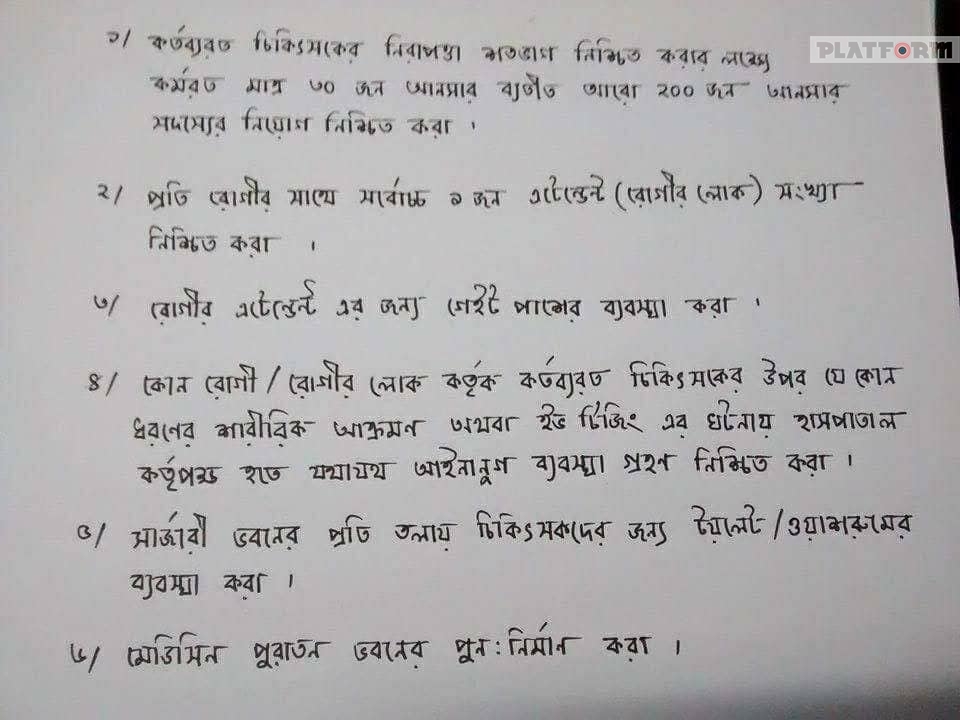 PLATFORM
১/ কর্তব্যরত চিকিৎসকের নিরাপত্তা শতভাগ নিশ্চিত করার লক্ষ্যে
কর্মরত মাত্র ৩০ জন আনসার ব্যতীত আরো ২০০ জন আনসার
সদস্যের নিয়োগ নিশ্চিত করা ।
২/ প্রতি রোগীর সাথে সর্বোচ্চ ১ জন এটেন্ডেন্ট (রোগীর লোক) সংখ্যা
নিশ্চিত করা ।
৩/ রোগীর এটেন্ডেন্ট এর জন্য গেইট পাশের ব্যবস্থা করা ।
৪/ কোন রোগী / রোগীর লোক কর্তৃক কর্তব্যরত চিকিৎসকের উপর যে কোন
ধরণের শারীরিক আক্রমন অথবা ইভ টিজিং এর ঘটনায় হাসপাতাল
কর্তৃপক্ষ হতে যথাযথ আইনানুগ ব্যবস্থা গ্রহণ নিশ্চিত করা ।
৫/ সার্জারী ভবনের প্রতি তলায় চিকিৎসকদের জন্য টয়লেট / ওয়াশরুমের
ব্যবস্থা করা ।
৬/ মেডিসিন পুরাতন ভবনের পুন:নির্মান করা ।